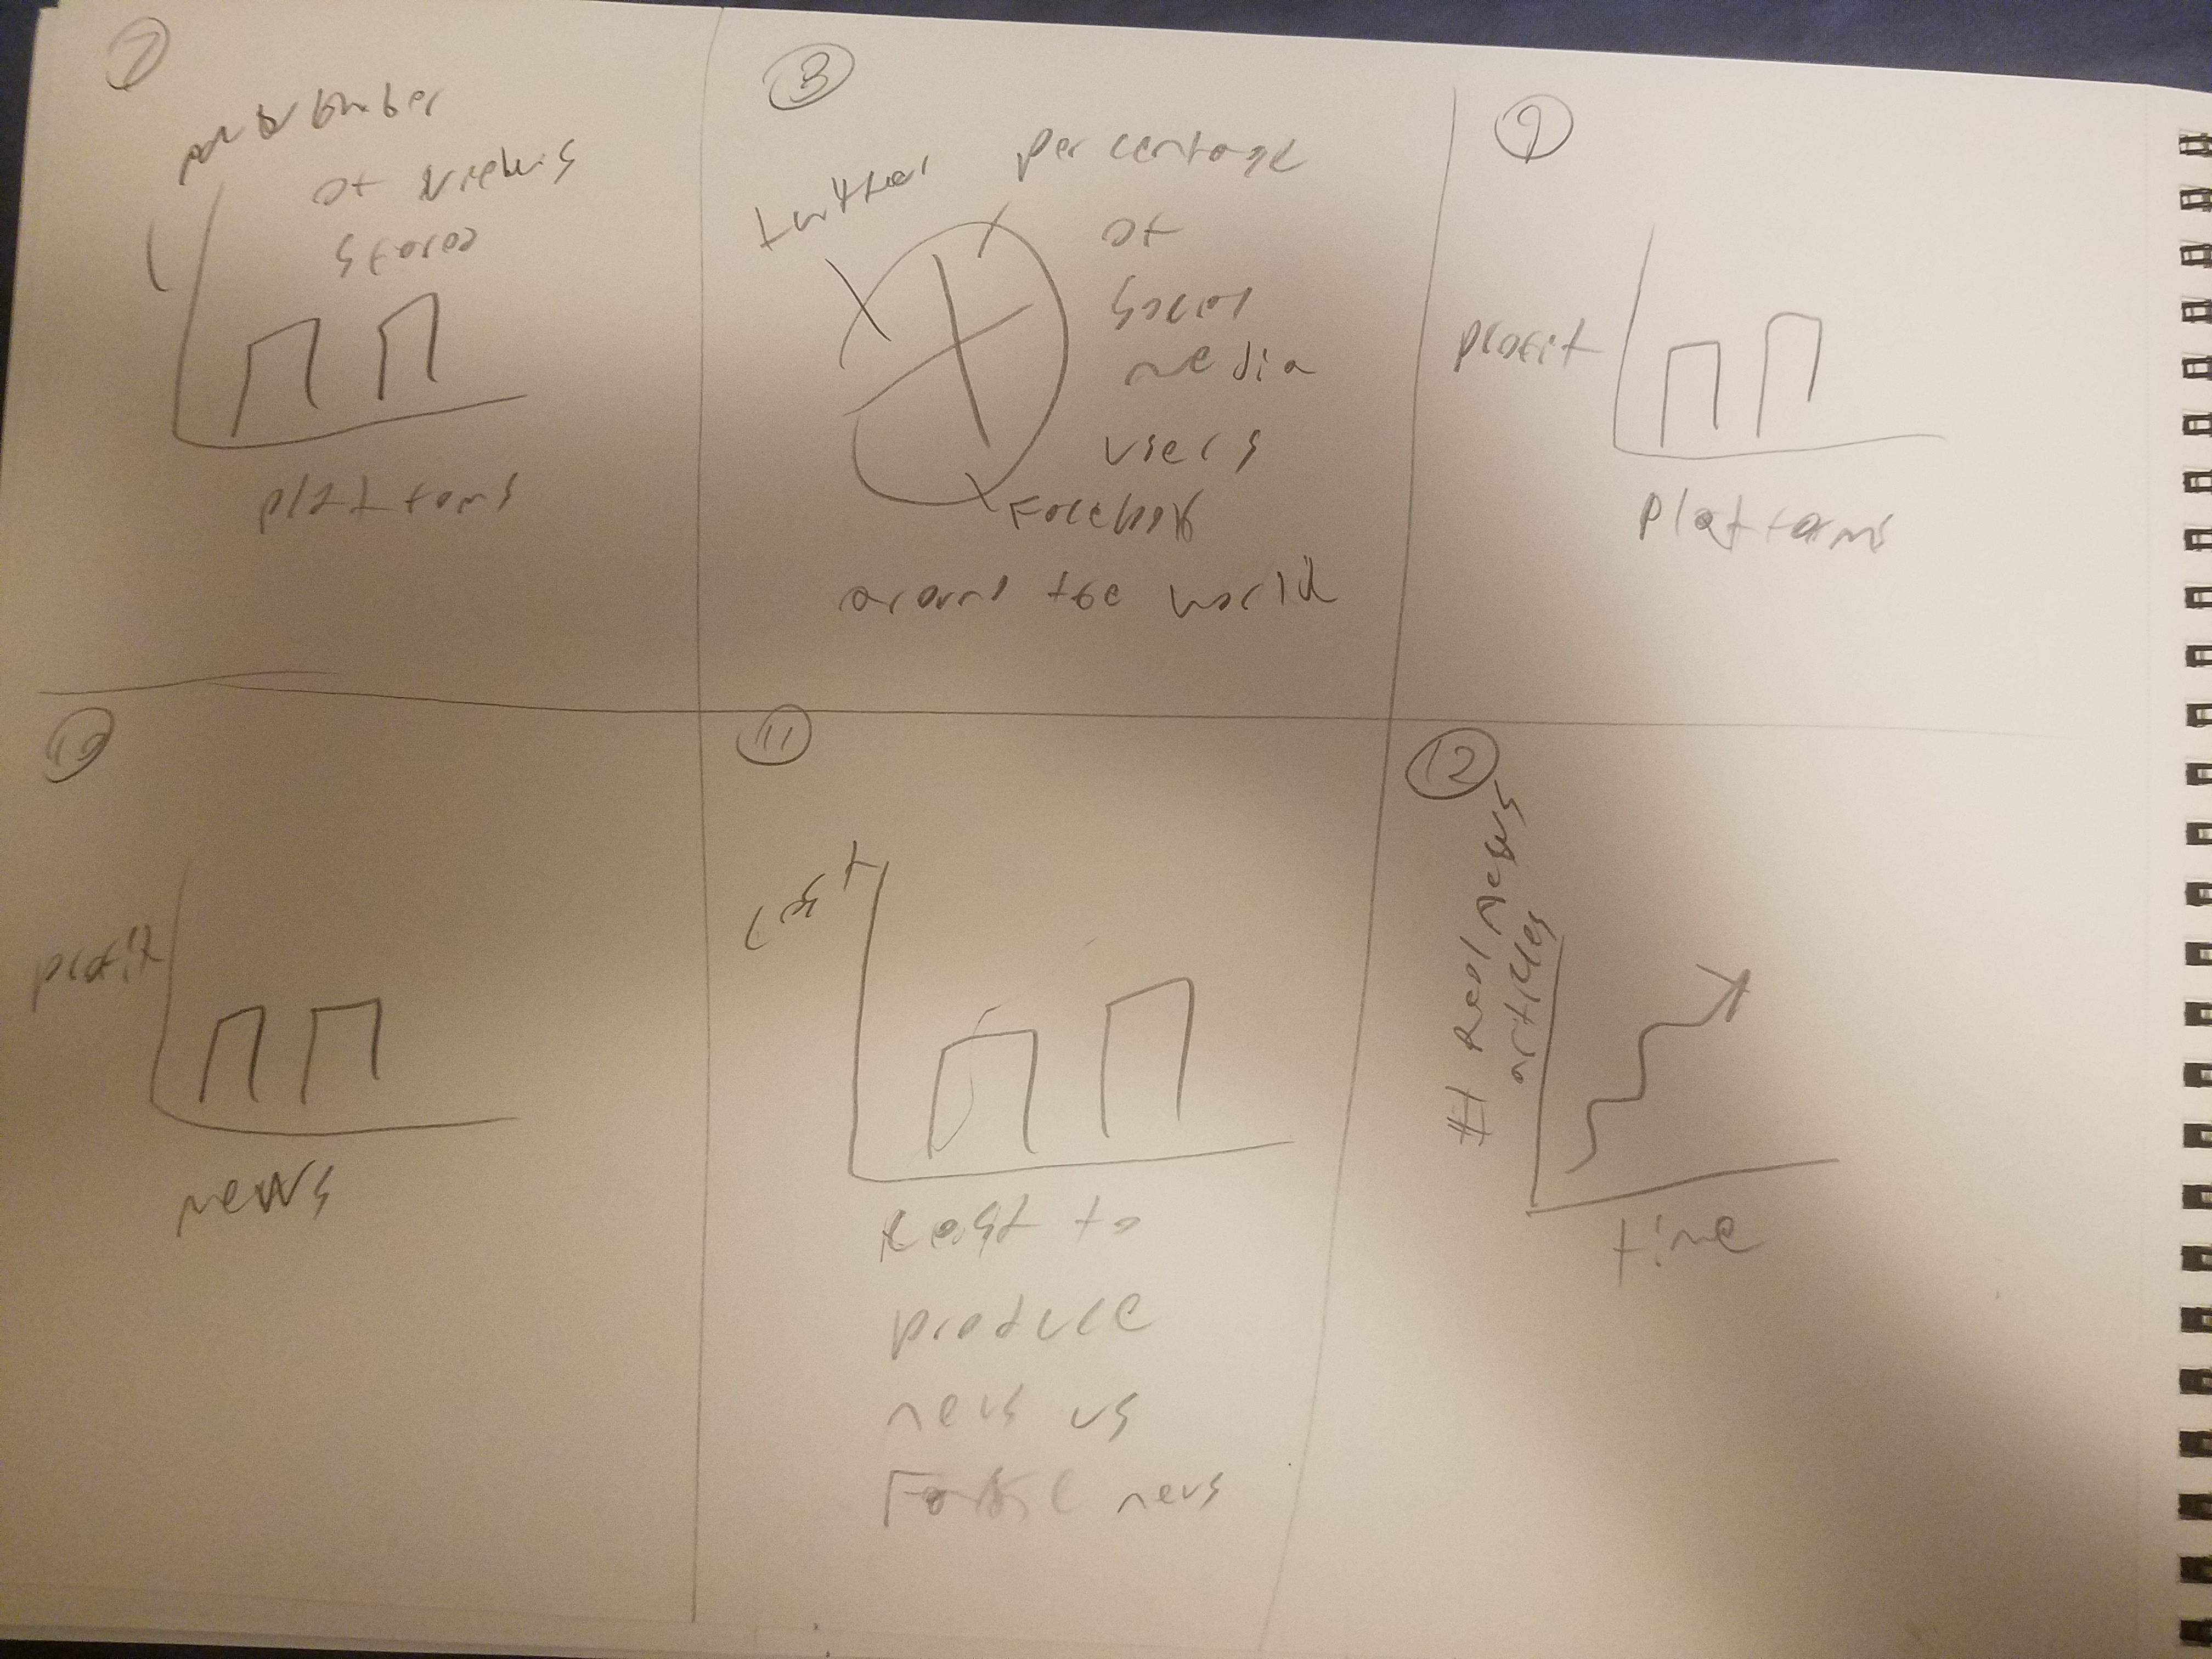 7
of
platforms
8
twitter
percentage
of
social
media
users
Facebook
around the world
9
profit
platforms
10
profit
news
11
cost
cost to
produce
news vs
news
12
# Real news
articles
time